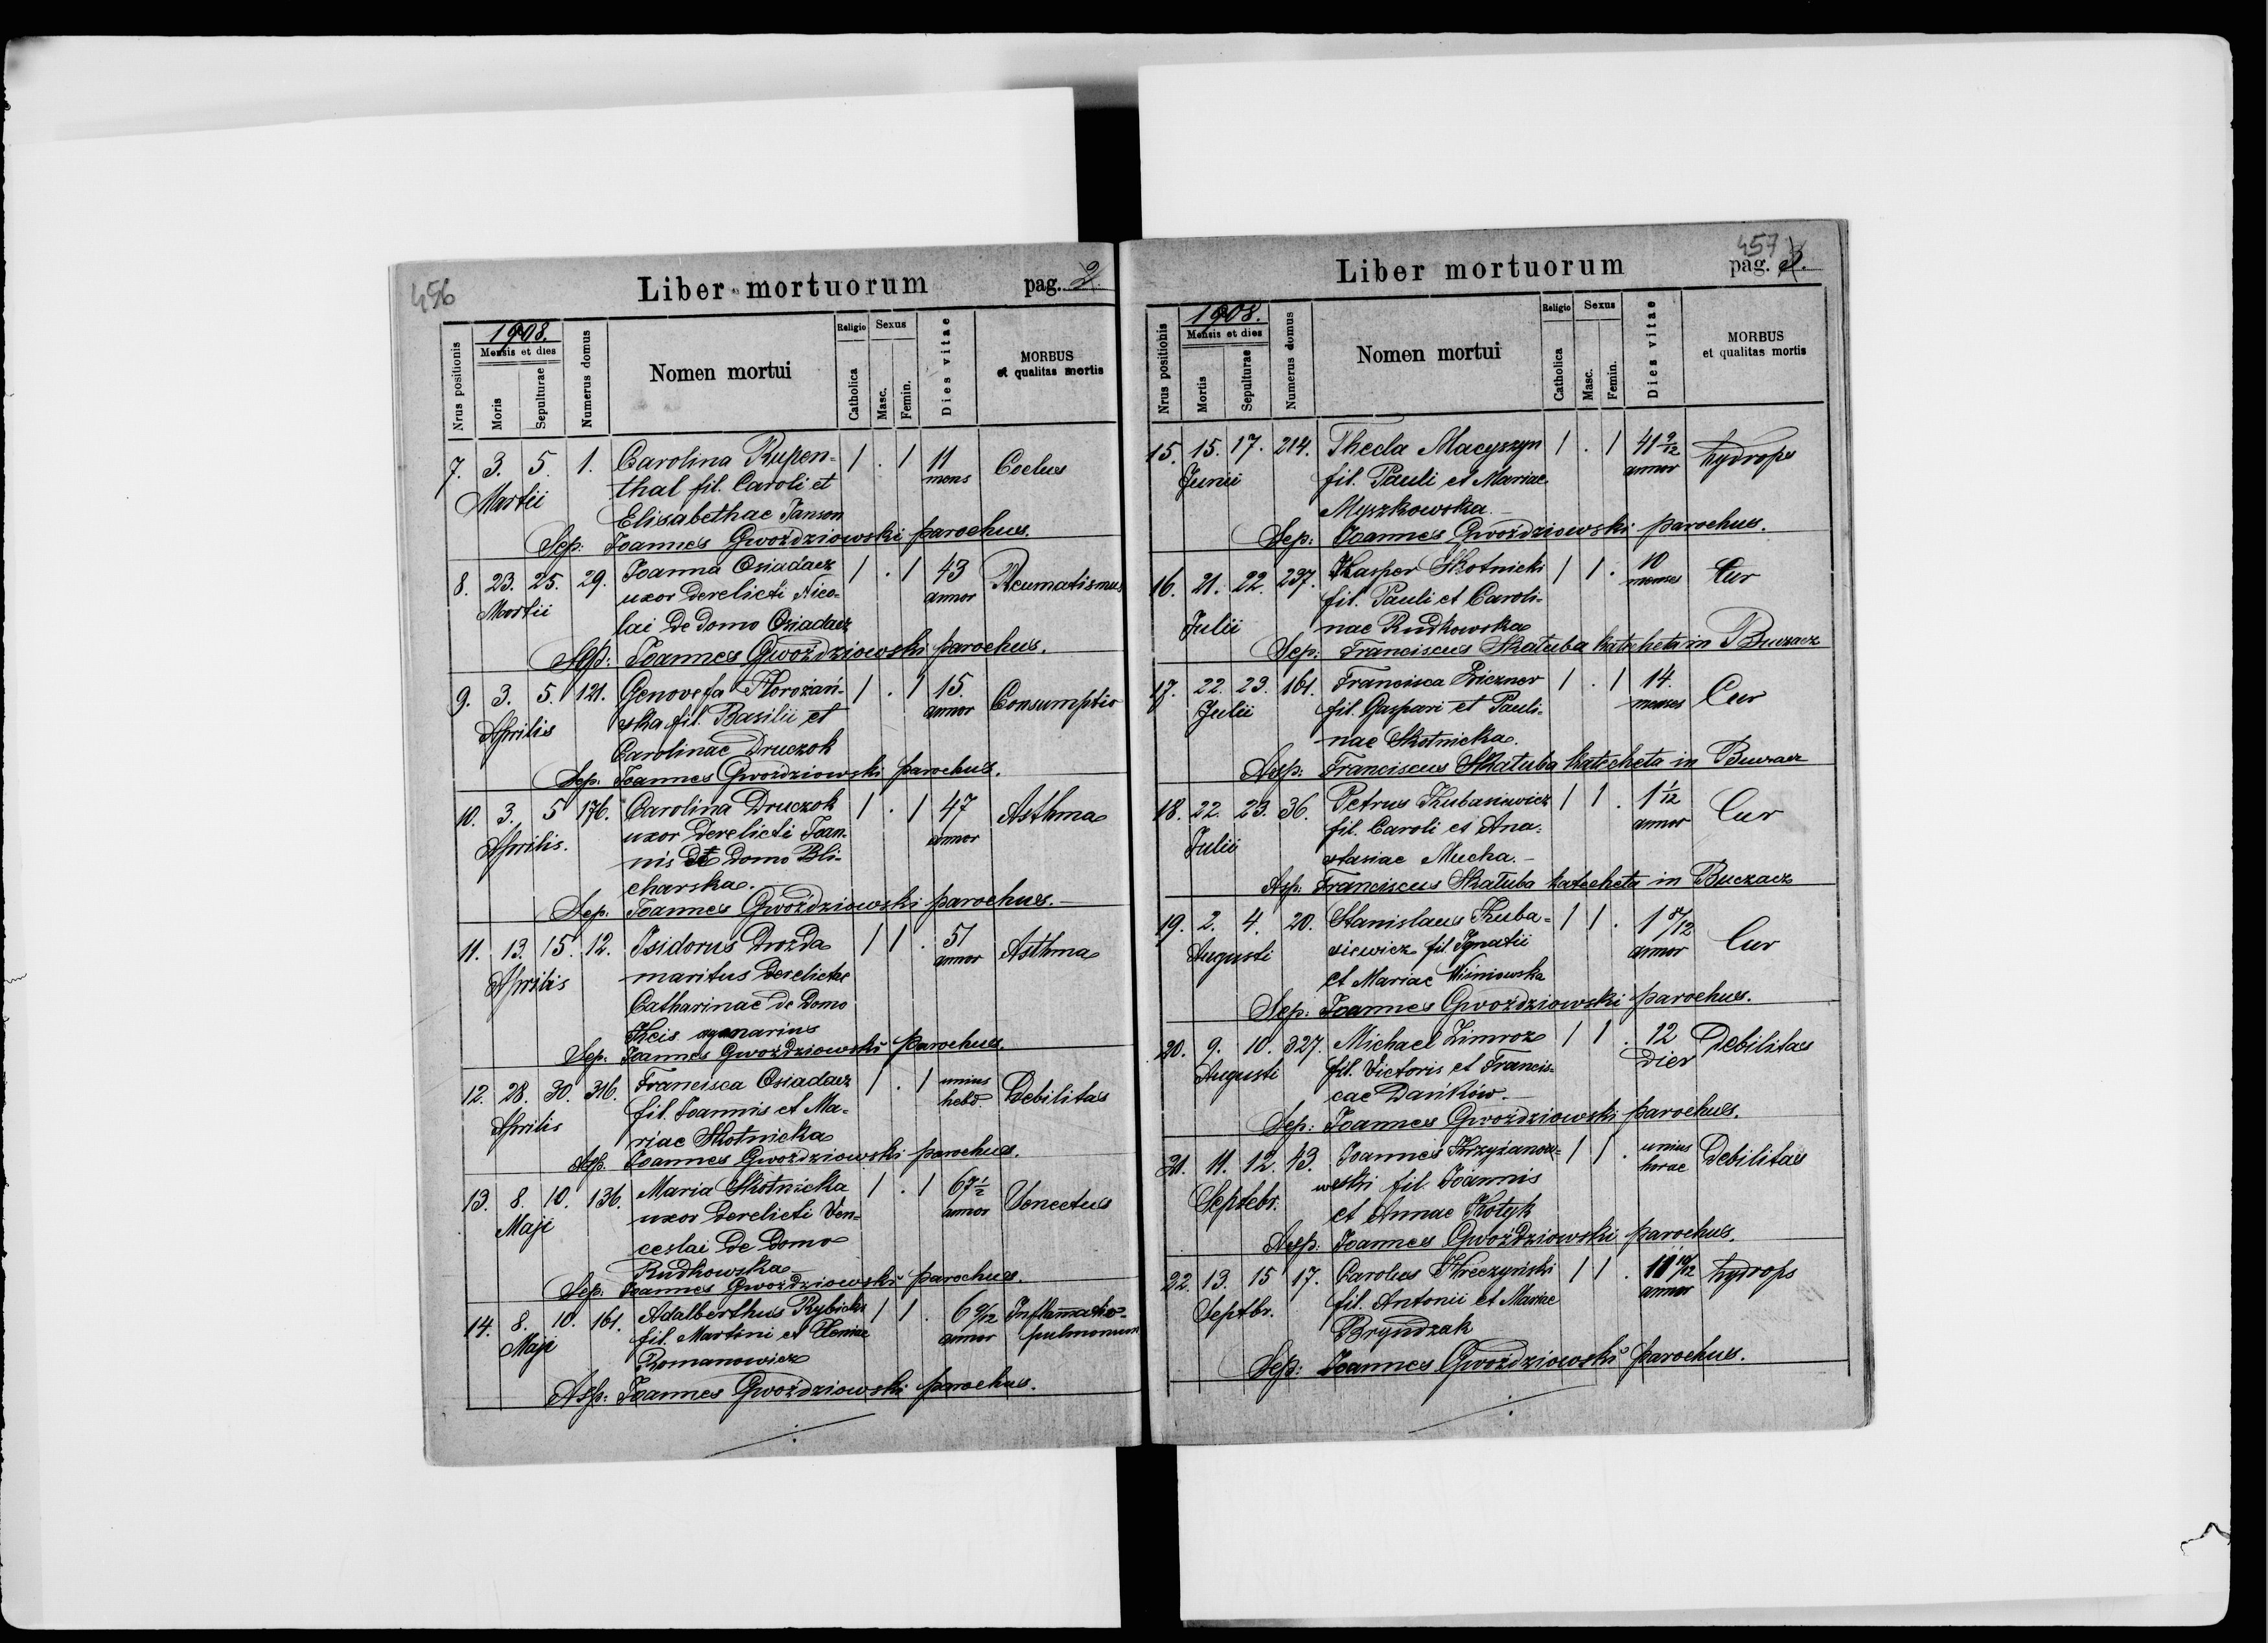 456
Liber mortuorum pag. 2
1908.
Nrus positionis
Mensis et dies
Moris
Sepulturae
Numerus domus
Nomen mortui
Religio
Catholica
Sexus
Masc.
Femin.
Dies vitae
MORBUS
et qualitas mortis
7. 3. 5. 1. Carolina Rupen- 1 . 1 11 Coclus
Martii thal fil. Caroli et mens
Elisabethae Janson
Sep: Joannes Gwoździowski parochus.
8. 23. 25. 29. Joanna Osiadacz 1 . 1 43 Reumatismus
Martii uxor derelicti Nico- annor
lai de domo Osiadacz
Asp: Joannes Gwoździowski parochus.
9. 3. 5. 121. Genovefa Horożań- 1 . 1 15. Consumptio
Aprilis ska fil. Basilii et annor
Carolinae Druczok
Sep. Joannes Gwoździowski parochus.
10. 3. 5 176. Carolina Druczok 1 . 1 47 Asthma
Aprilis. uxor derelicti Joan- annor
nis de domo Bli-
charska.
Sep. Joannes Gwoździowski parochus.
11. 13. 15. 12. Isidorus Drozda 1 1 . 51 Asthma
Aprilis maritus derelictae annor
Catharinae de domo
Keis
Sep: Joannes Gwoździowski parochus.
12. 28. 30. 316. Francisca Osiadacz 1 . 1 unius Debilitas
Aprilis fil. Joannis et Ma- hebd.
riae Skotnicka
Asp. Joannes Gwoździowski parochus.
13. 8. 10. 136. Maria Skotnicka 1 . 1 67 1/2 Senectus
Maji uxor derelicti Ven- annor
ceslai de domo
Rudkowska
Sep: Joannes Gwoździowski parochus.
14. 8. 10. 161. Adalberthus Rybicki 1 1 . 6 9/12 Inflamatio
Maji fil. Martini et annor pulmonum
Romanowicz
Asp: Joannes Gwoździowski parochus.
457
Liber mortuorum pag. 3.
1908.
Nrus positionis
Mensis et dies
Mortis
Sepulturae
Numerus domus
Nomen mortui
Religio
Catholica
Sexus
Masc.
Femin.
Dies vitae
MORBUS
et qualitas mortis
15. 15. 17. 214. Thecla Macyszyn 1 . 1 41 9/12 hydrops
Junii fil. Pauli et Mariae annor
Myszkowska
Sep: Joannes Gwoździowski parochus.
16. 21. 22. 237. Kasper Skotnicki 1 1 . 10 Cur
Julii fil. Pauli et Caroli- menses
nae Rudkowska
Sep: Franciscus Skatuba katecheta in Buczacz
17. 22. 23. 161. Francisca 1 . 1 14. Cur
Julii fil. Gaspari et Pauli- menses
nae Skotnicka.
Asp: Franciscus Skatuba katecheta in Buczacz
18. 22. 23. 36. Petrus Kubasiewicz 1 1 . 1 1/12 Cur
Julii fil. Caroli et Ana- annor
stasiae Mucha.
Asp: Franciscus Skatuba katecheta in Buczacz
19. 2. 4. 20. Stanislaus Kuba- 1 1 . 1 8/12 Cur
Augusti siewicz fil. Ignatii annor
et Mariae Wiśniowska
Sep: Joannes Gwoździowski parochus.
20. 9. 10. 327. Michael Zimroz 1 1 . 12 Debilitas
Augusti fil. Victoris et Francis- dier
cae Dańków.
Sep: Joannes Gwoździowski parochus.
21. 11. 12. 43. Joannes Krzyżanow- 1 1 . unius Debilitas
Septebr. wski fil. Joannis horae
et Annae Kotyk
Asp: Joannes Gwoździowski parochus.
22. 13. 15 17. Carolus Kreczyński 1 1 . hydrops
Septbr. fil. Antonii et Mariae annor
Bryndzak
Sep: Joannes Gwoździowski parochus.